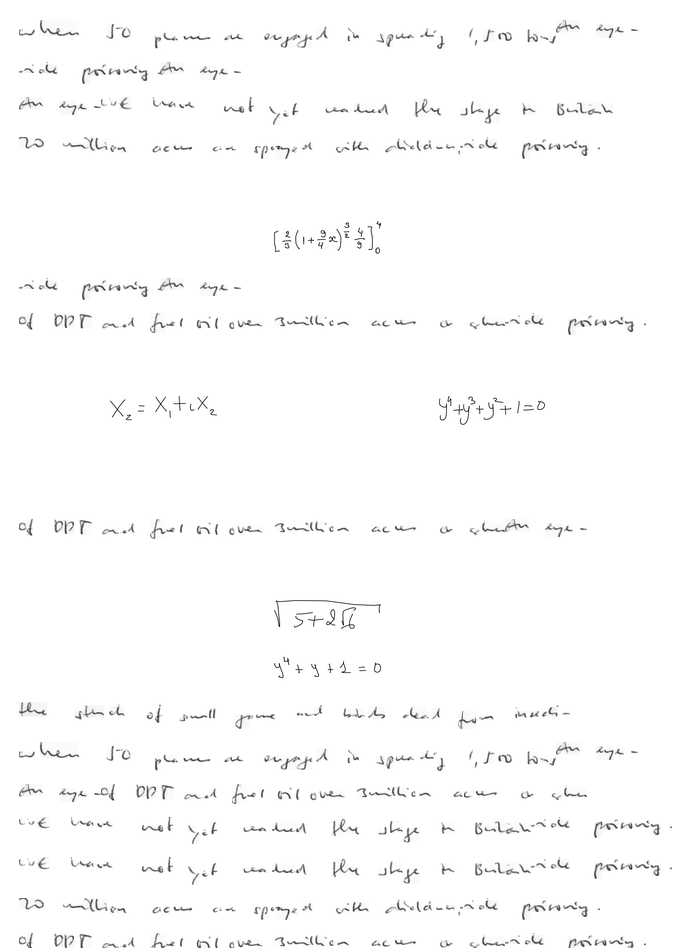 when 50 planes are engaged in spreading 1,500 tons An eye-
-icide poisoning An eye-
An eye-we have not yet reached the stage in Britain
20 million acres are sprayed with dieldrin,icide poisoning.
[\frac{2}{3}(1+\frac{9}{4}x)^{\frac{3}{2}}\frac{4}{9}]_0^4
-icide poisoning An eye-
of DDT and fuel oil over 3 million acres or icide poisoning.
X_2 = X_1 + iX_2    y^4+y^3+y^2+1=0
of DDT and fuel oil over 3 million acres or An eye-
\sqrt{5+2\sqrt{6}}
y^4+y+1=0
the stench of small game and birds dead from insecti-
when 50 planes are engaged in spreading 1,500 tons An eye-
An eye-of DDT and fuel oil over 3 million acres or
we have not yet reached the stage in Britain-icide poisoning.
we have not yet reached the stage in Britain-icide poisoning.
20 million acres are sprayed with dieldrin,icide poisoning.
of DDT and fuel oil over 3 million acres or icide poisoning.